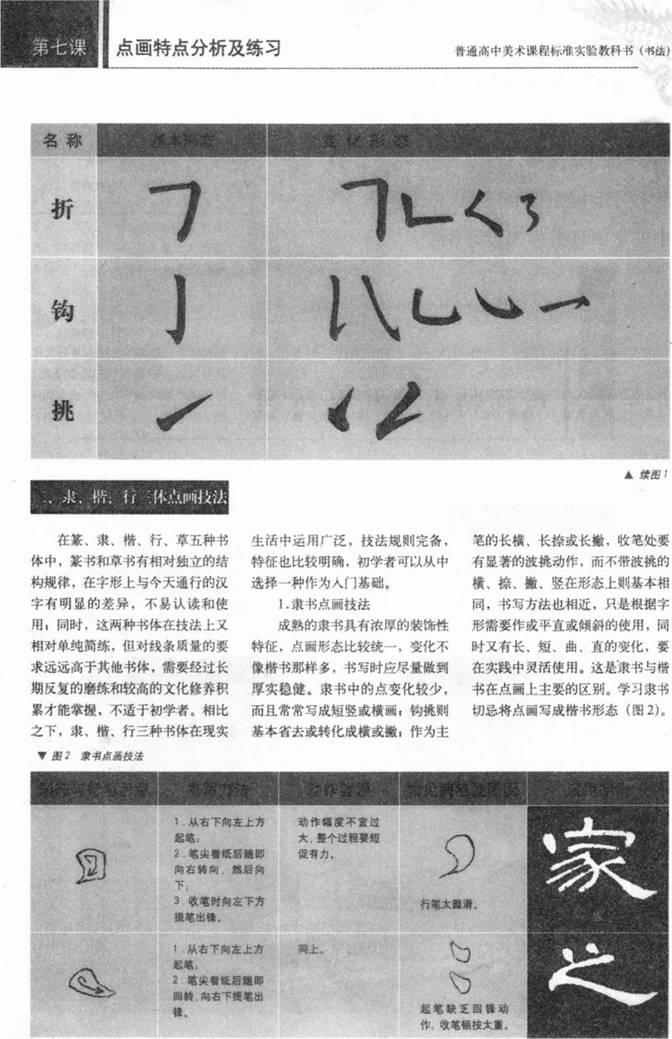 第七课
点画特点分析及练习
普通高中美术课程标准实验教科书（书法）
名称
基本形态
变化形态
折
钩
挑
▲ 续图1
二、隶、楷、行三体点画技法
在篆、隶、楷、行、草五种书
体中，篆书和草书有相对独立的结
构规律，在字形上与今天通行的汉
字有明显的差异，不易认读和使
用；同时，这两种书体在技法上又
相对单纯简练，但对线条质量的要
求远远高于其他书体，需要经过长
期反复的磨练和较高的文化修养积
累才能掌握，不适于初学者。相比
之下，隶、楷、行三种书体在现实
生活中运用广泛，技法规则完备，
特征也比较明确，初学者可以从中
选择一种作为入门基础。
1.隶书点画技法
成熟的隶书具有浓厚的装饰性
特征，点画形态比较统一，变化不
像楷书那样多，书写时应尽量做到
厚实稳健。隶书中的点变化较少，
而且常常写成短竖或横画；钩挑则
基本省去或转化成横或撇；作为主
笔的长横、长捺或长撇，收笔处要
有显著的波挑动作，而不带波挑的
横、捺、撇、竖在形态上则基本相
同，书写方法也相近，只是根据字
形需要作或平直或倾斜的使用，同
时又有长、短、曲、直的变化，要
在实践中灵活使用。这是隶书与楷
书在点画上主要的区别。学习隶书
切忌将点画写成楷书形态（图2）。
▼ 图2 隶书点画技法
1.从右下向左上方
起笔；
2.笔尖着纸后随即
向右转向，然后向
下；
3.收笔时向左下方
提笔出锋。
动作幅度不宜过
大，整个过程要短
促有力。
行笔太圆滑。
家
1.从右下向左上方
起笔；
2.笔尖着纸后随即
回转，向右下提笔出
锋。
同上。
起笔缺乏回锋动
作，收笔顿按太重。
之